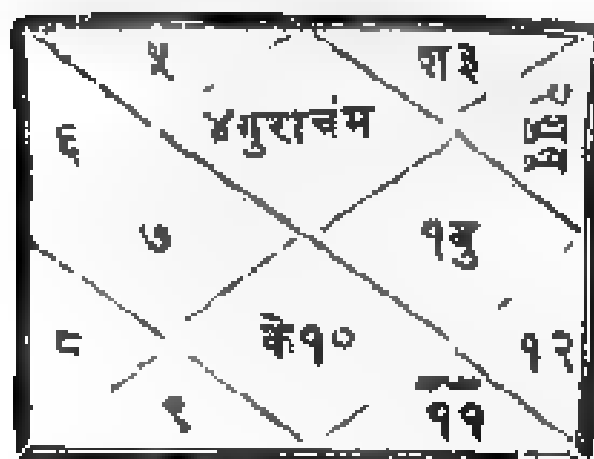 ५
श ३
४गुराचंम
६
७
१बु
८
के१०
१२
९
११